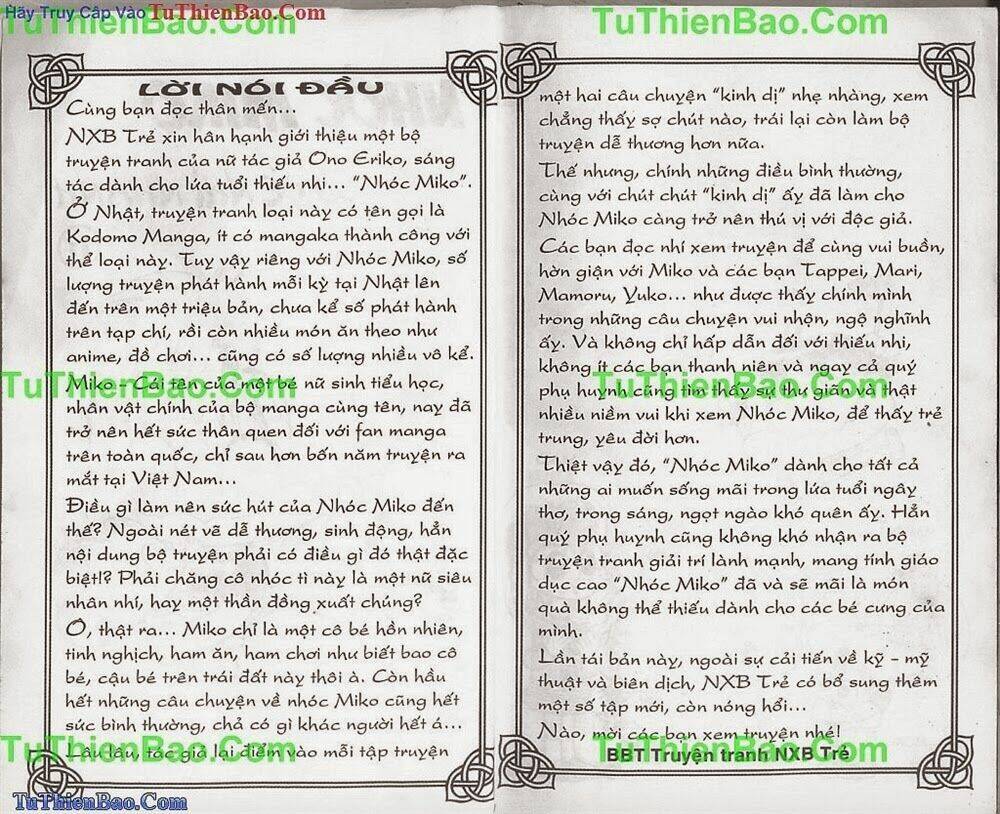 Hãy Truy Cập Vào TuThienBao.Com
TuThienBao.Com
TuThienBao.Com
LỜI NÓI ĐẦU
Cùng bạn đọc thân mến...
NXB Trẻ xin hân hạnh giới thiệu một bộ
truyện tranh của nữ tác giả Ono Eriko, sáng
tác dành cho lứa tuổi thiếu nhi... “Nhóc Miko”.
Ở Nhật, truyện tranh loại này có tên gọi là
Kodomo Manga, ít có mangaka thành công với
thể loại này. Tuy vậy riêng với Nhóc Miko, số
lượng truyện phát hành mỗi kỳ tại Nhật lên
đến trên một triệu bản, chưa kể số phát hành
trên tạp chí, rồi còn nhiều món ăn theo như
anime, đồ chơi... cũng có số lượng nhiều vô kể.
TuThienBao.Com
Miko – Cái tên của một bé nữ sinh tiểu học,
nhân vật chính của bộ manga cùng tên, nay đã
trở nên hết sức thân quen đối với fan manga
trên toàn quốc, chỉ sau hơn bốn năm truyện ra
mắt tại Việt Nam...
Điều gì làm nên sức hút của Nhóc Miko đến
thế? Ngoài nét vẽ dễ thương, sinh động, hẳn
nội dung bộ truyện phải có điều gì đó thật đặc
biệt!? Phải chăng cô nhóc tì này là một nữ siêu
nhân nhí, hay một thần đồng xuất chúng?
Ồ, thật ra... Miko chỉ là một cô bé hồn nhiên,
tinh nghịch, ham ăn, ham chơi như biết bao cô
bé, cậu bé trên trái đất này thôi à. Còn hầu
hết những câu chuyện về nhóc Miko cũng hết
sức bình thường, chả có gì khác người hết á...
Lâu lâu, tác giả lại điểm vào mỗi tập truyện
TuThienBao.Com
TuThienBao.Com
một hai câu chuyện “kinh dị” nhẹ nhàng, xem
chẳng thấy sợ chút nào, trái lại còn làm bộ
truyện dễ thương hơn nữa.
Thế nhưng, chính những điều bình thường,
cùng với chút chút “kinh dị” ấy đã làm cho
Nhóc Miko càng trở nên thú vị với độc giả.
Các bạn đọc nhí xem truyện để cùng vui buồn,
hờn giận với Miko và các bạn Tappei, Mari,
Mamoru, Yuko... như được thấy chính mình
trong những câu chuyện vui nhộn, ngộ nghĩnh
ấy. Và không chỉ hấp dẫn đối với thiếu nhi,
không ít các bạn thanh niên và ngay cả quý
TuThienBao.Com
phụ huynh cũng tìm thấy sự thư giãn và thật
nhiều niềm vui khi xem Nhóc Miko, để thấy trẻ
trung, yêu đời hơn.
Thiệt vậy đó, “Nhóc Miko” dành cho tất cả
những ai muốn sống mãi trong lứa tuổi ngây
thơ, trong sáng, ngọt ngào khó quên ấy. Hẳn
quý phụ huynh cũng không khó nhận ra bộ
truyện tranh giải trí lành mạnh, mang tính giáo
dục cao “Nhóc Miko” đã và sẽ mãi là món
quà không thể thiếu dành cho các bé cưng của
mình.
Lần tái bản này, ngoài sự cải tiến về kỹ – mỹ
thuật và biên dịch, NXB Trẻ có bổ sung thêm
một số tập mới, còn nóng hổi...
Nào, mời các bạn xem truyện nhé!
TuThienBao.Com
BBT Truyện tranh NXB Trẻ